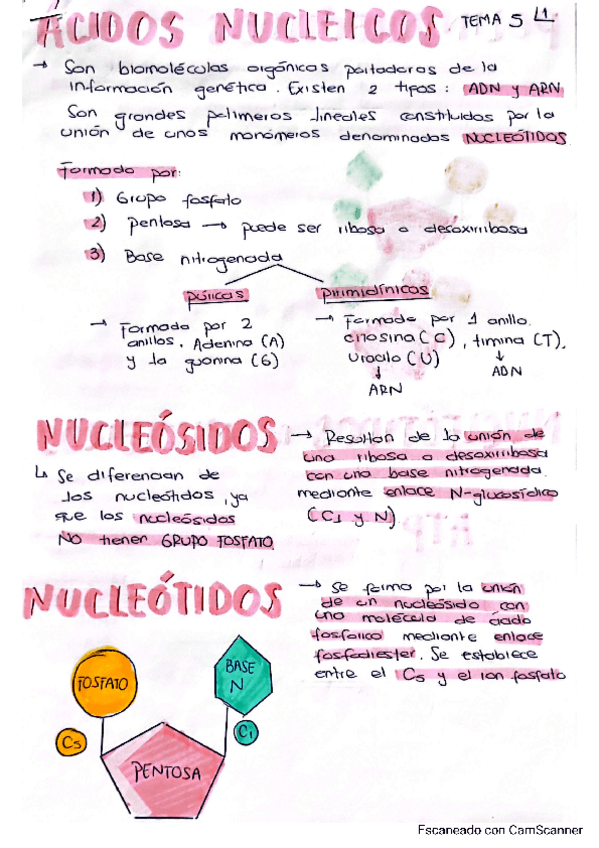 ÁCIDOS NUCLEICOS. TEMA 5 L1
→ Son biomoléculas orgánicas portadoras de la
información genética. Existen 2 tipos: ADN y ARN
Son grandes polimeros lineales constituidos por la
unión de unos monómeros denominados NUCLEÓTIDOS.
Formado por:
1) Grupo fosfato
2) pentosa → puede ser ribosa o desoxirribosa
3) Base nitrogenada
púricas
→ Formada por 2
anillos. Adenina (A)
y la guanina (G)
pirimidínicos
→ Formada por 1 anillo.
citosina (C), timina (T),
uracilo (U)
↓ ARN
↓ ADN
NUCLEÓSIDOS
↳ Se diferencian de
los nucleótidos, ya
que los nucleósidos
NO tienen GRUPO FOSFATO.
→ Resultan de la unión de
una ribosa o desoxirribosa
con una base nitrogenada.
mediante enlace N-glucosídico
(C1 y N)
NUCLEÓTIDOS
→ Se forma por la unión
de un nucleósido con
una molécula de ácido
fosfórico mediante enlace
fosfodiester. Se establece
entre el C5 y el ion fosfato
FOSFATO
BASE
N
C5
C1
PENTOSA
Escaneado con CamScanner